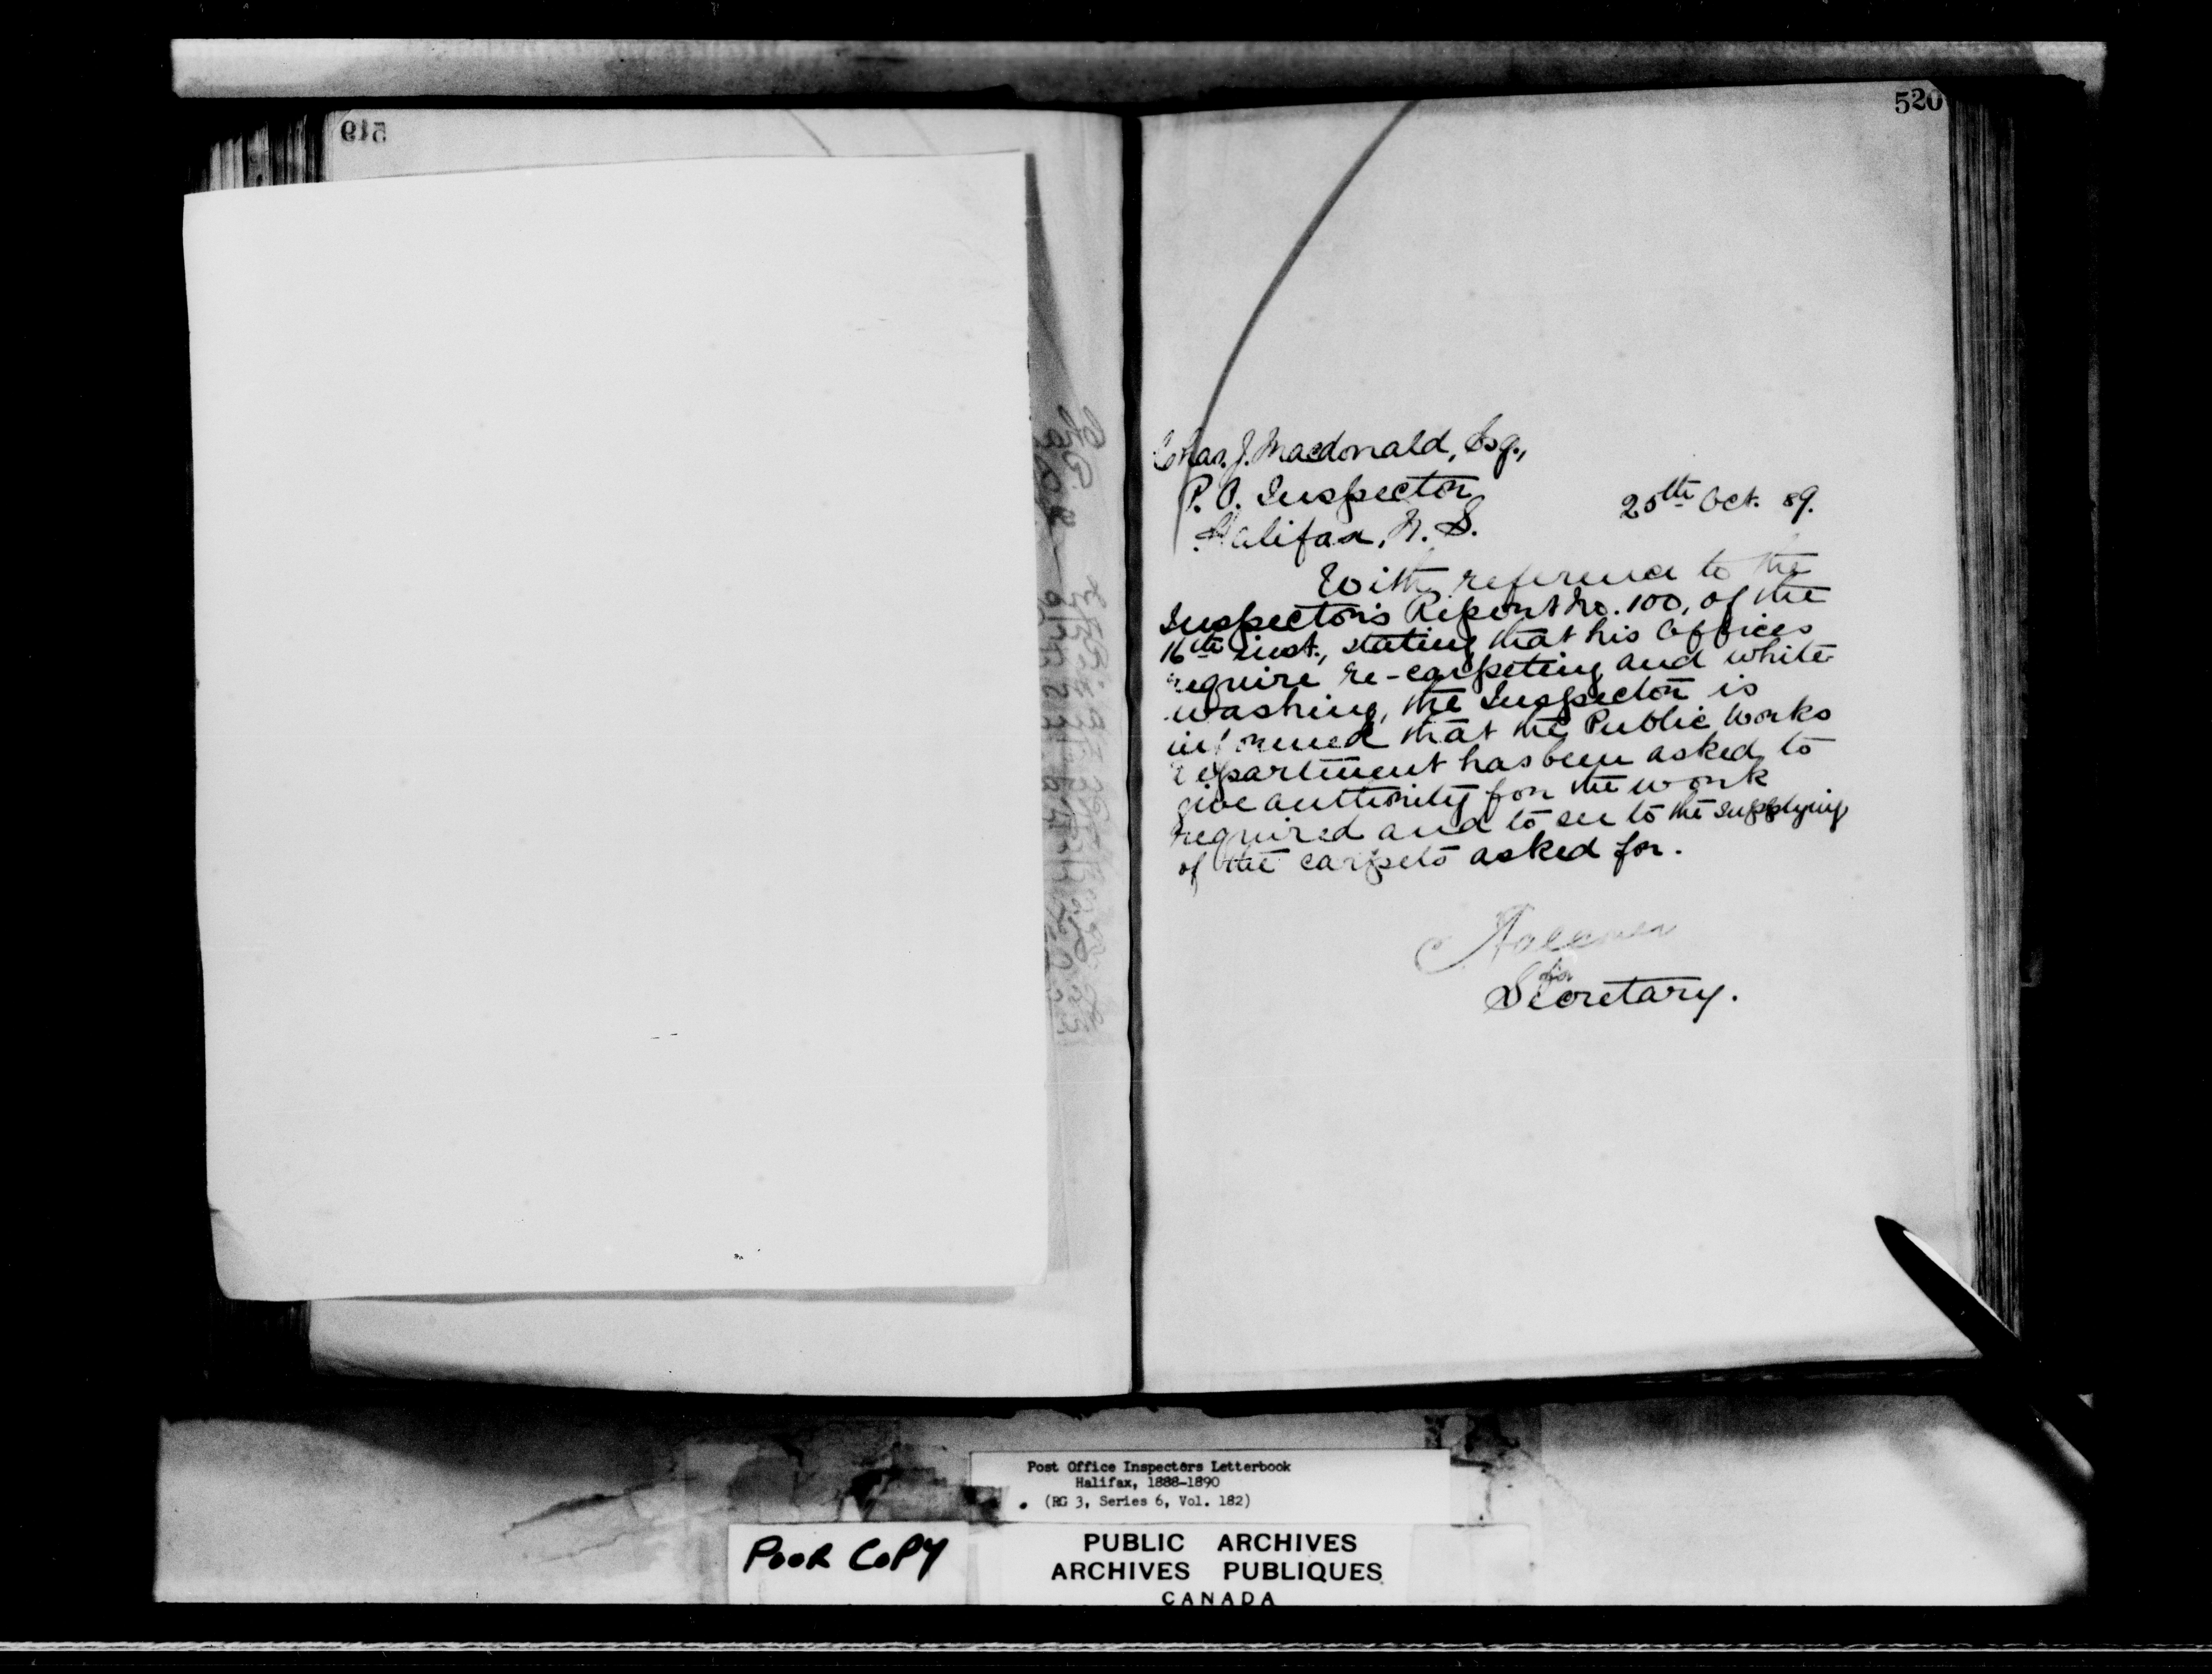 519
520
Chas. J. Macdonald, Esq.,
P. O. Inspector
25th Oct. 89.
Halifax, N. S.
With reference to the
Inspector's Report No. 100, of the
16th inst., stating that his Offices
require re-carpeting and white-
washing, the Inspector is
informed that the Public Works
Department has been asked to
give authority for the work
required and to see to the supplying
of the carpets asked for.
for
Secretary.
Post Office Inspectors Letterbook
Halifax, 1888-1890
(RG 3, Series 6, Vol. 182)
POOR COPY
PUBLIC ARCHIVES
ARCHIVES PUBLIQUES
CANADA